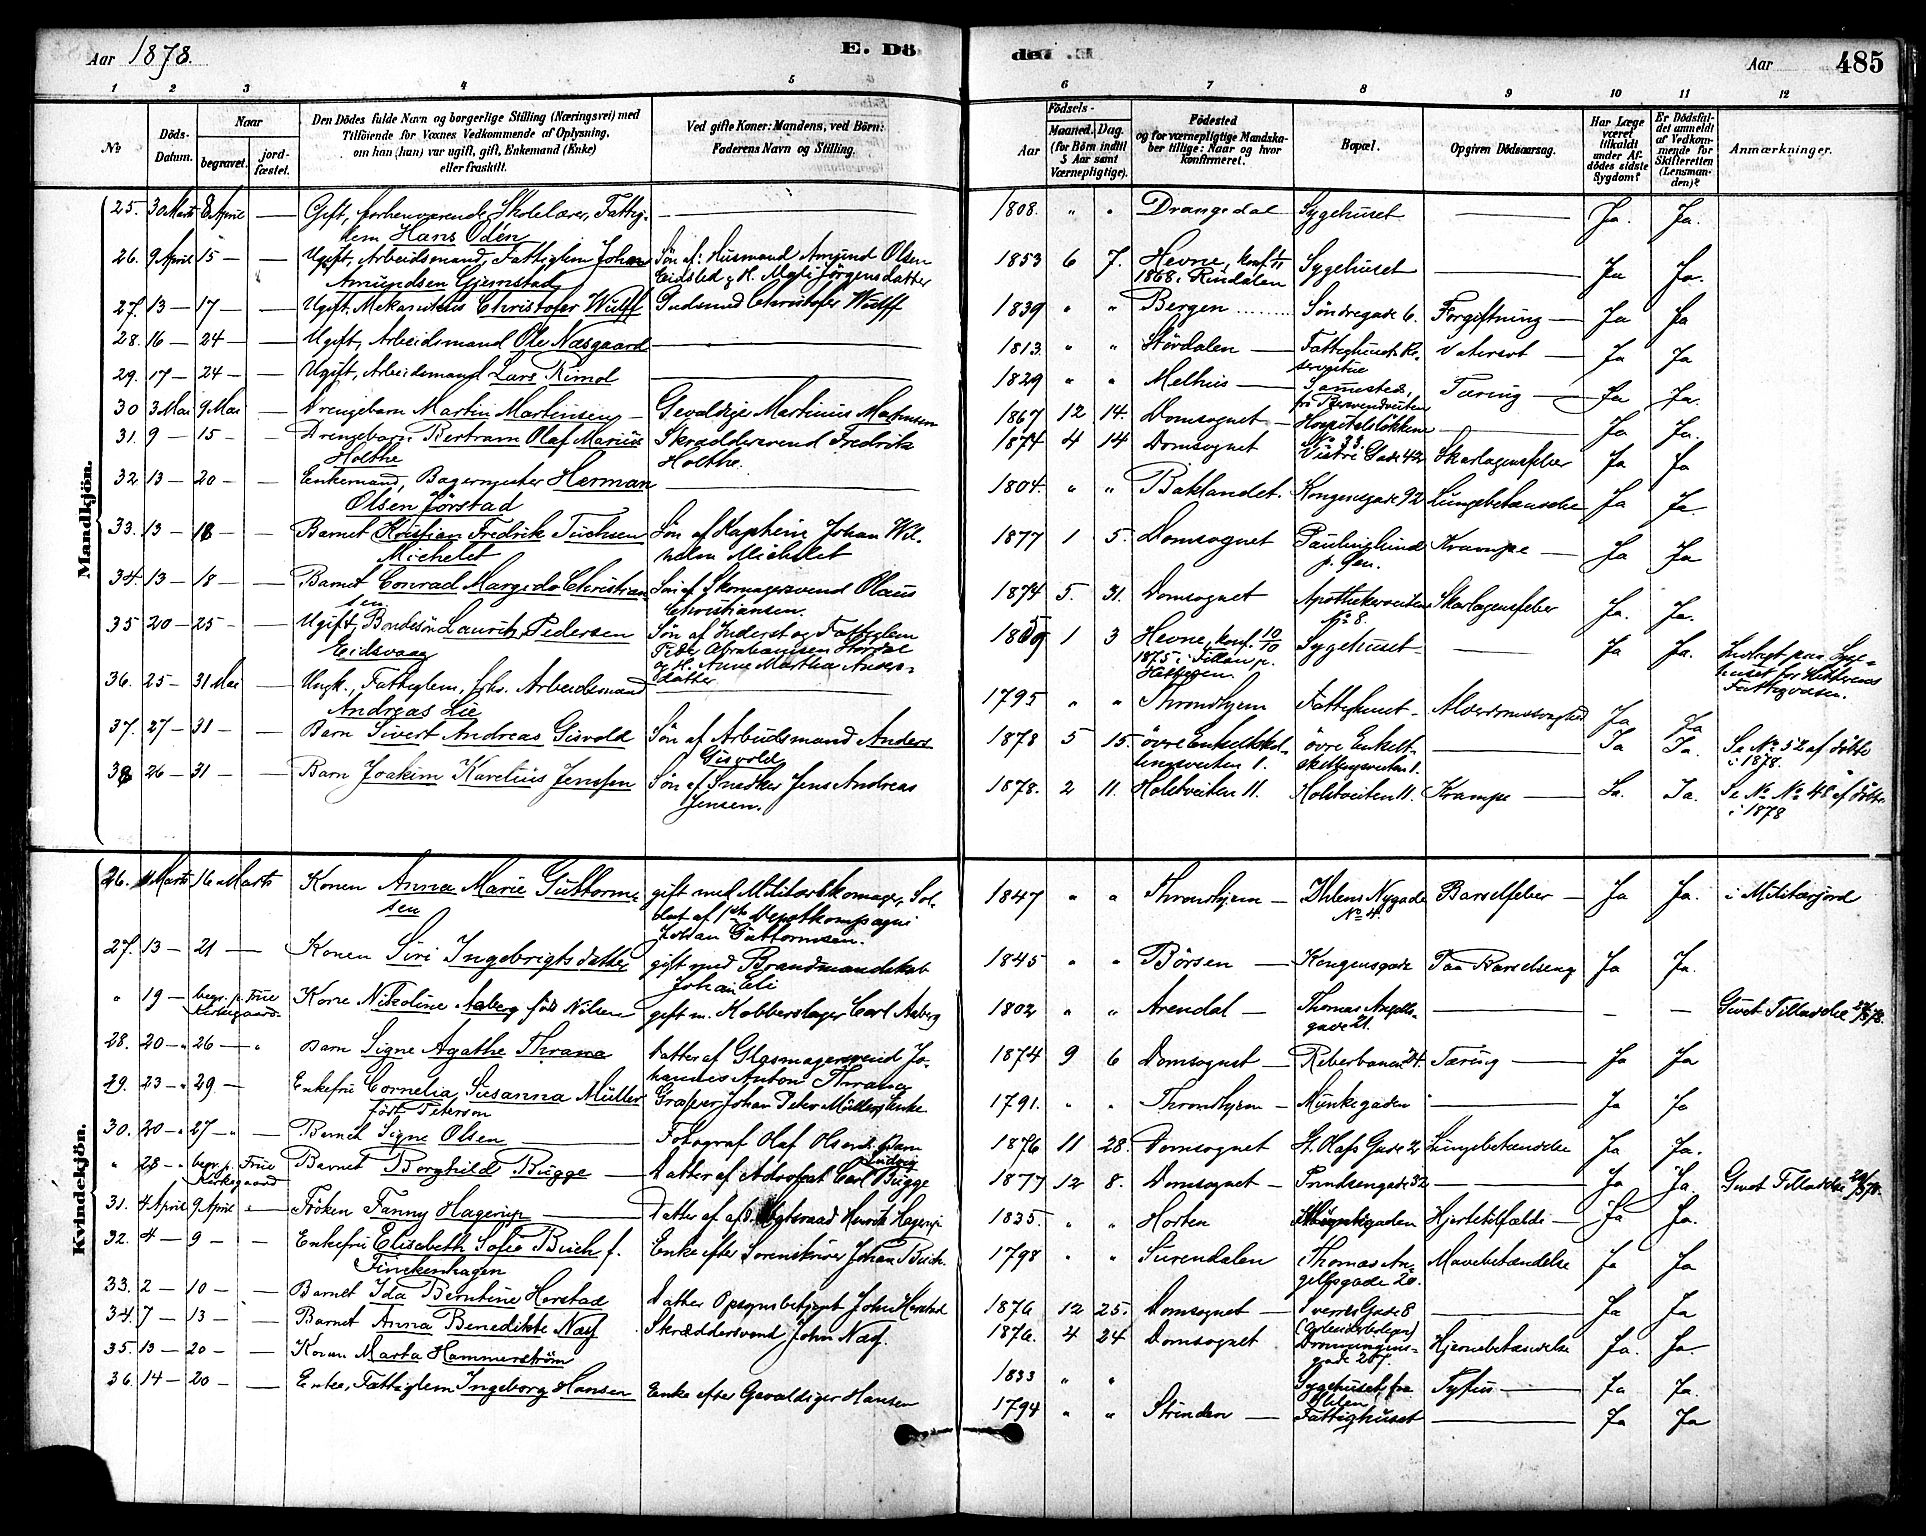 Aar 1878.
E. Dö
de. E.
Aar
485
1 2 3 4 5 6 7 8 9 10 11 12
No
Döds-Datum.
Naar
begravet.
jordfæstet.
Den Dödes fulde Navn og borgerlige Stilling (Næringsvei) med
Tilföiende for Voxnes Vedkommende af Oplysning,
om han (hun) var ugift, gift, Enkemand (Enke)
eller fraskilt.
Ved gifte Koner: Mandens, ved Börn:
Faderens Navn og Stilling.
Födsels-
Aar
Maaned. Dag.
(for Börn indtil
5 Aar samt
Værnepligtige).
Födested
og for værnepligtige Mandskaber tillige: Naar og hvor
konfirmeret.
Bopæl.
Opgiven Dödsaarsag.
Har Læge været tilkaldt under Afdödes sidste Sygdom?
Er Dödsfaldet anmeldt af Vedkommende for Skifteretten (Lensmanden)?
Anmærkninger.
Mandkjön.
25. 30 Marts 8 April — Gift, forhenværende Skolelærer, Fattig- —
lem Hans Odén
1808. " " Drangedal Sygehuset — Ja. Ja.
26. 9 April 15 — — Ugift, Arbeidsmand, Fattiglem Johan Søn af: Husmand Amund Olsen
Amundsen Gjemstad
1853 6 7. Hevne, konf.
1868 i Rindalen Sygehuset — Ja Ja.
27. 13 — 17 — — Ugift, Mekanikus Christofer Wulff Gudsmed Christofer Wulff
1839 " " Bergen Søndregade 6. Forgiftning — Ja Ja
28. 16 — 24 — — Ugift, Arbeidsmand Ole Næsgaard —
1813. " " Stördalen — Fattighuset Vatersot — Ja Ja
29. 17 — 24 — — Ugift, Arbeidsmand Lars Rimol —
1829 " " Melhus — Sammesteds, Tæring — Ja Ja.
30 3 Mai 9 Mai — Drengebarn Martin Martinsen — Gevaldige Martinus
1867 12 14. Domsognet — Hospitalsløkken
No 33. — Ja Ja.
31. 9 — 15 — — Drengebarn Bertram Olaf Marius Skræddersvend Fredrik
Holthe Holthe.
1874 4 14 Domsognet Vestre Gade 42 Skarlagensfeber Ja Ja
32 13 — 20 — — Enkemand, Bagermester Herman —
Olsen Jörstad
1804. " " Baklandet. Kongensgade 92 Lungebetændelse Ja Ja
33. 13 — 18 — — Barnet Kristian Fredrik Tuchsen Søn af Kaptein Johan Wil-
Michelet helm Michelet
1877 1 5. Domsognet Krampe — Ja Ja
34. 13 — 18 — — Barnet Conrad Margido Christian Søn af Skomagersvend Olaus
sen Christiansen.
1874 5. 31. Domsognet Apothekerveiten
No 8. Skarlagensfeber Ja. Ja.
35 20 — 25 — — Ugift, Laurits Pedersen Søn af Inderst og Fattiglem
Eidsvaag Peder Abrahamsen
og H. Anne Martha Anders-
datter
1859 1 3 Hevne, konf. 10/10
1875 i Sygehuset — Ja Ja.
36. 25 — 31 Mai Ungk., Fattiglem, fhv. Arbeidsmand —
Andreas Lie
1795 " " Throndhjem Fattighuset — Alderdomssvaghed Ja Ja
37. 27 — 31 — Barn Sivert Andreas Gisvold Søn af Arbeidsmand Anders
Gisvold
1878 5 15. övre Enkeltskil-
lingsveiten 1. övre Enkelt-
skillingsveiten 1. — Ja Ja. Se No 52 af födte
i 1878.
38 26 — 31 — Barn Joakim Karelius Jenssen Søn af Snedker Jens Andreas
Jensen.
1878. 2 11. Holstveiten 11. Holstveiten 11. Krampe — Ja. Ja. Se No No 48 af födte
i 1878
Kvindekjön.
26. 11 Marts 16 Marts Konen Anna Marie Guttorm- gift med Militærskomager, Sol-
sen dat af 1ste Depotkompagni
Johan Guttormsen.
1847 " " Throndhjem — Ihlens Nygade
No 4. Barselfeber — Ja Ja. i Militærjord
27. 13 — 21 — Konen Siri Ingebrigtsdatter gift med Brandmandskab
Johan Eli
1845 " " Börsen — Kongensgade Paa Barselseng Ja Ja.
" 19 — begr. p. Frue
Kirkegaard. Kone Nikoline Aaberg föd Nilsen gift m. Kobberslager Carl Aaberg
1802 " " Arendal — Thomas Angells
gade 21. — — Givet Tilladelse
28. 20 — 26 — " Barn Signe Agathe Thrana Datter af Glasmagersvend Jo-
hannes Anton Thrana
1874 9 6 Domsognet — Reberbanen 24. Tæring — Ja Ja
29. 23 — 29 — Enkefru Cornelia Susanna Müller Johan Peter Müllers Enke
födt Peterson
1791. " " Throndhjem — Munkegaden — Ja Ja
30. 20 — 27 — — Barnet Signe Olsen — Fotograf Olaf Olsens Barn
1876 11 28. Domsognet St. Olafs Gade 2 Lungebetændelse Ja Ja.
" 28 — begr. p. Frue
Kirkegaard Barnet Borghild Bugge — Datter af Advokat Carl Ludvig Bugge
1877 12 8. Domsognet — Prindsensgade 32 — Ja Ja. Givet Tilladelse
31. 4 April 9 April — Fröken Fanny Hagerup — Datter af afd. Henrik Hagerup
1835. " " Horten Munkegaden Hjertetilfælde — Ja Ja.
32. 4 — 9 — — Enkefru Elisabeth Sofie Buch f. Enke efter Sorenskriver Johan Buch.
Finckenhagen
1798 " " Surendalen (Thomas An-
gellsgade 20. Mavebetændelse Ja Ja
33. 2 — 10 — — Barnet Ida Berntine Herstad Datter Opsynsbetjent John Herstad
1876 12 25. Domsognet — Sverres Gade 8 — Ja Ja
34. 7 — 13 — — Barnet Anna Benedikte Næss Skræddersvend John Næss.
1876. 4 24 Domsognet (Arbeiderboliger)
Dronningens-
gade Hjernebetændelse Ja. Ja.
35. 13 — 20 — — Konen Marta Hammerström
1833 " " Sygehuset, fra
Ihlen Tyfus — Ja Ja.
36. 14 — 20 — — Enke, Fattiglem Ingeborg Hansen Enke efter Gevaldiger Hansen
1794 " " Strinden — Fattighuset — Ja Ja